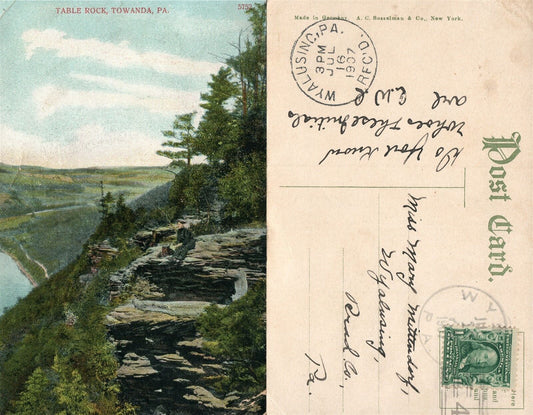 TABLE ROCK, TOWANDA, PA.
Made in Germany A. C. Bosselman & Co., New York.
WYALUSING, PA.
3 PM
JUL
16
1907
REC'D.
Do You Know
Whose These Initials
are E.W.R
Post Card.
Miss Mary Mittendorf,
Wyalusing,
Brad Co.,
Pa.
WY
PA